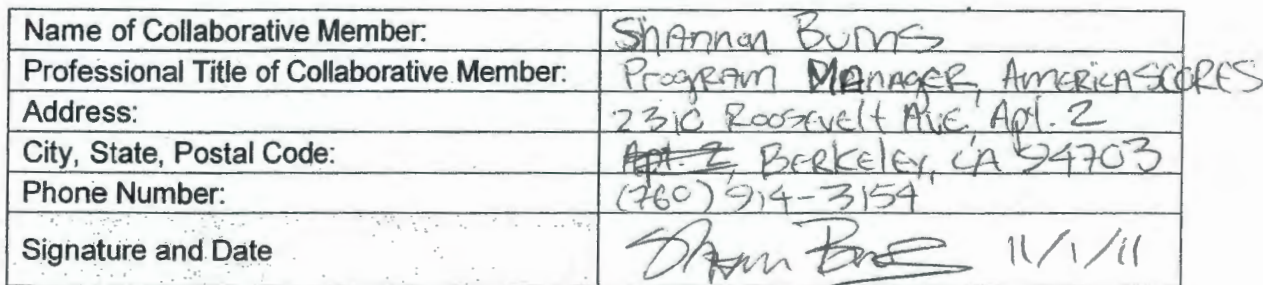 Name of Collaborative Member: Shannon Burns
Professional Title of Collaborative Member: Program Manager, AmericaSCORES
Address: 2310 Roosevelt Ave, Apt. 2
City, State, Postal Code: Apt. 2, Berkeley, CA 94703
Phone Number: (760) 914-3154
Signature and Date Shann Burns 11/1/11